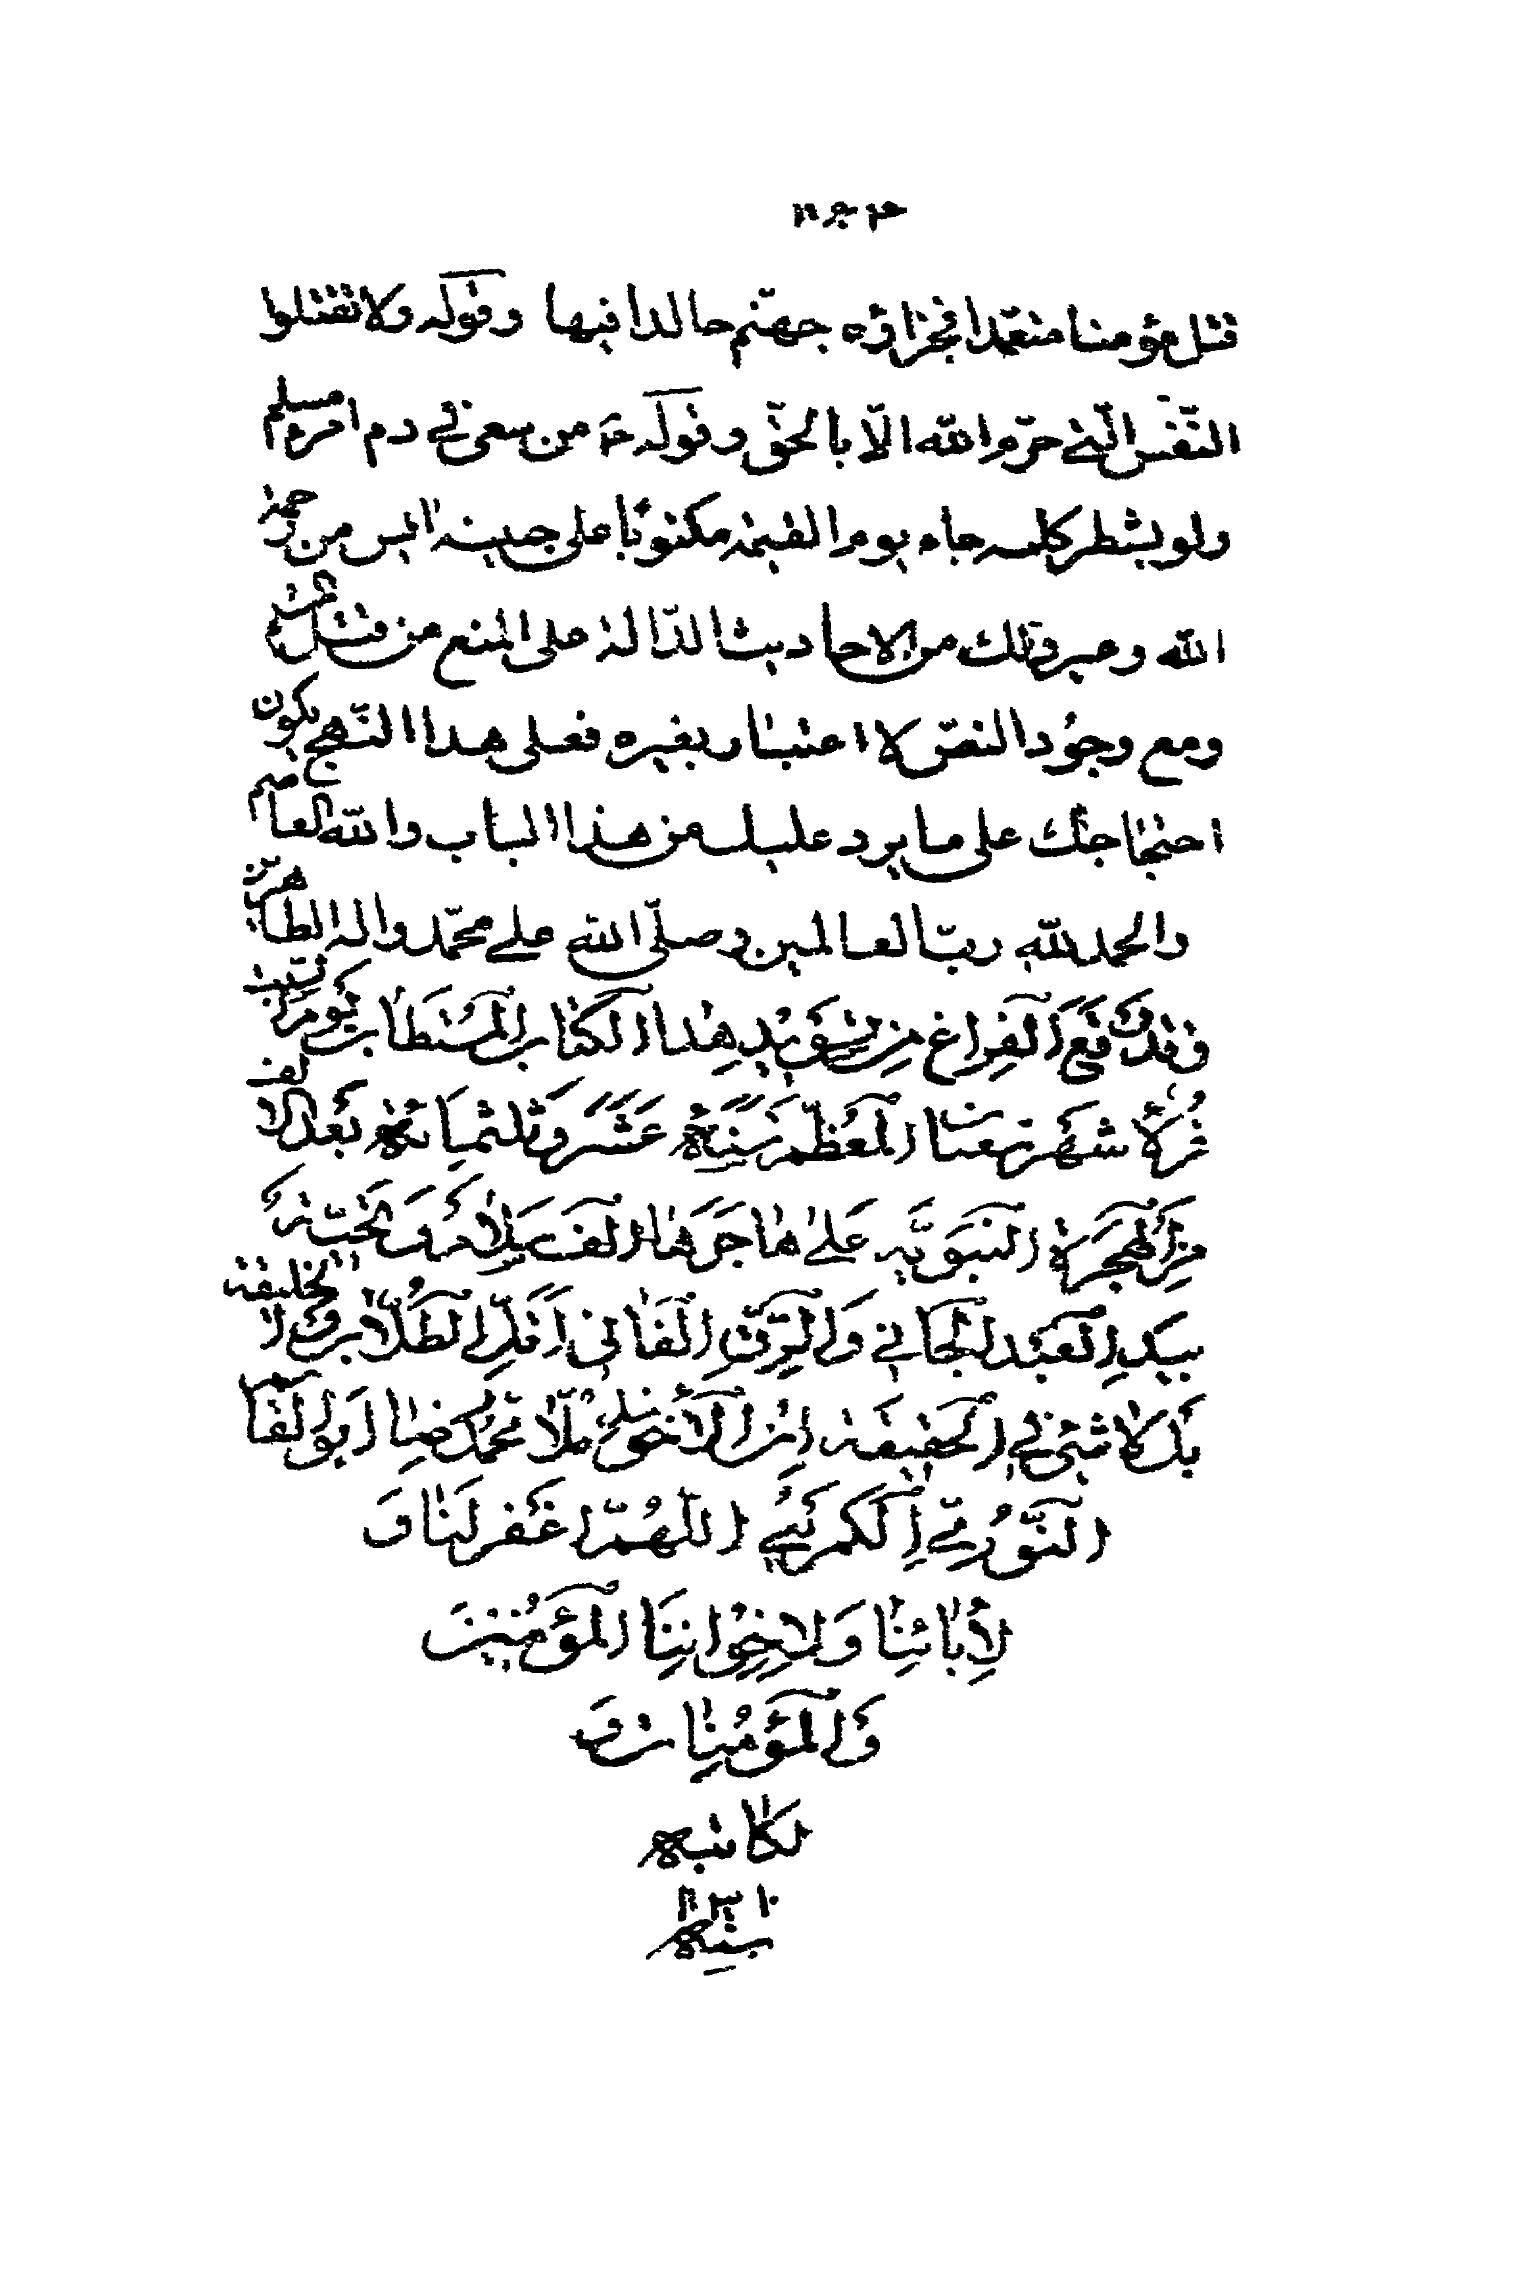 قتل مؤمنا متعمدا فجزاؤه جهنّم خالدا فيها وقوله ولا تقتلوا
النّفس الّتي حرّم الله الّا بالحقّ وقوله ع من سعى في دم امرء مسلم
ولو بشطر كلمة جاء يوم القيمة مكتوبًا على جبينه آيس من رحمة
الله وغير ذلك من الاحاديث الدّالة على المنع من قتل المسلم
ومع وجود النصّ لا اعتبار بغيره فعلى هذا النّهج يكون
احتجاجك على ما يرد عليك من هذا الباب والله العاصم
والحمد لله ربّ العالمين وصلّى الله على محمّد واله الطّاهرين
وقد وقع الفراغ من تسويد هذا الكتاب المستطاب يوم
غرّة شهر شعبان المعظّم سنة عشر وثلثمائة بعد الالف
من الهجرة النبويّه على هاجرها الف سلام وتحيّة
بيد العبد الجاني والرّقّ الفاني اقلّ الطّلّاب ولا الخليفة
بل لا شيء في الحقيقة ابن الاخوند ملّا محمّد رضا ابو القاسم
النّوري الكمري اللّهمّ اغفر لنا و
لأبائنا ولاخواننا المؤمنين
والمؤمنات و
لكاتبه
سنة ١٣١٠